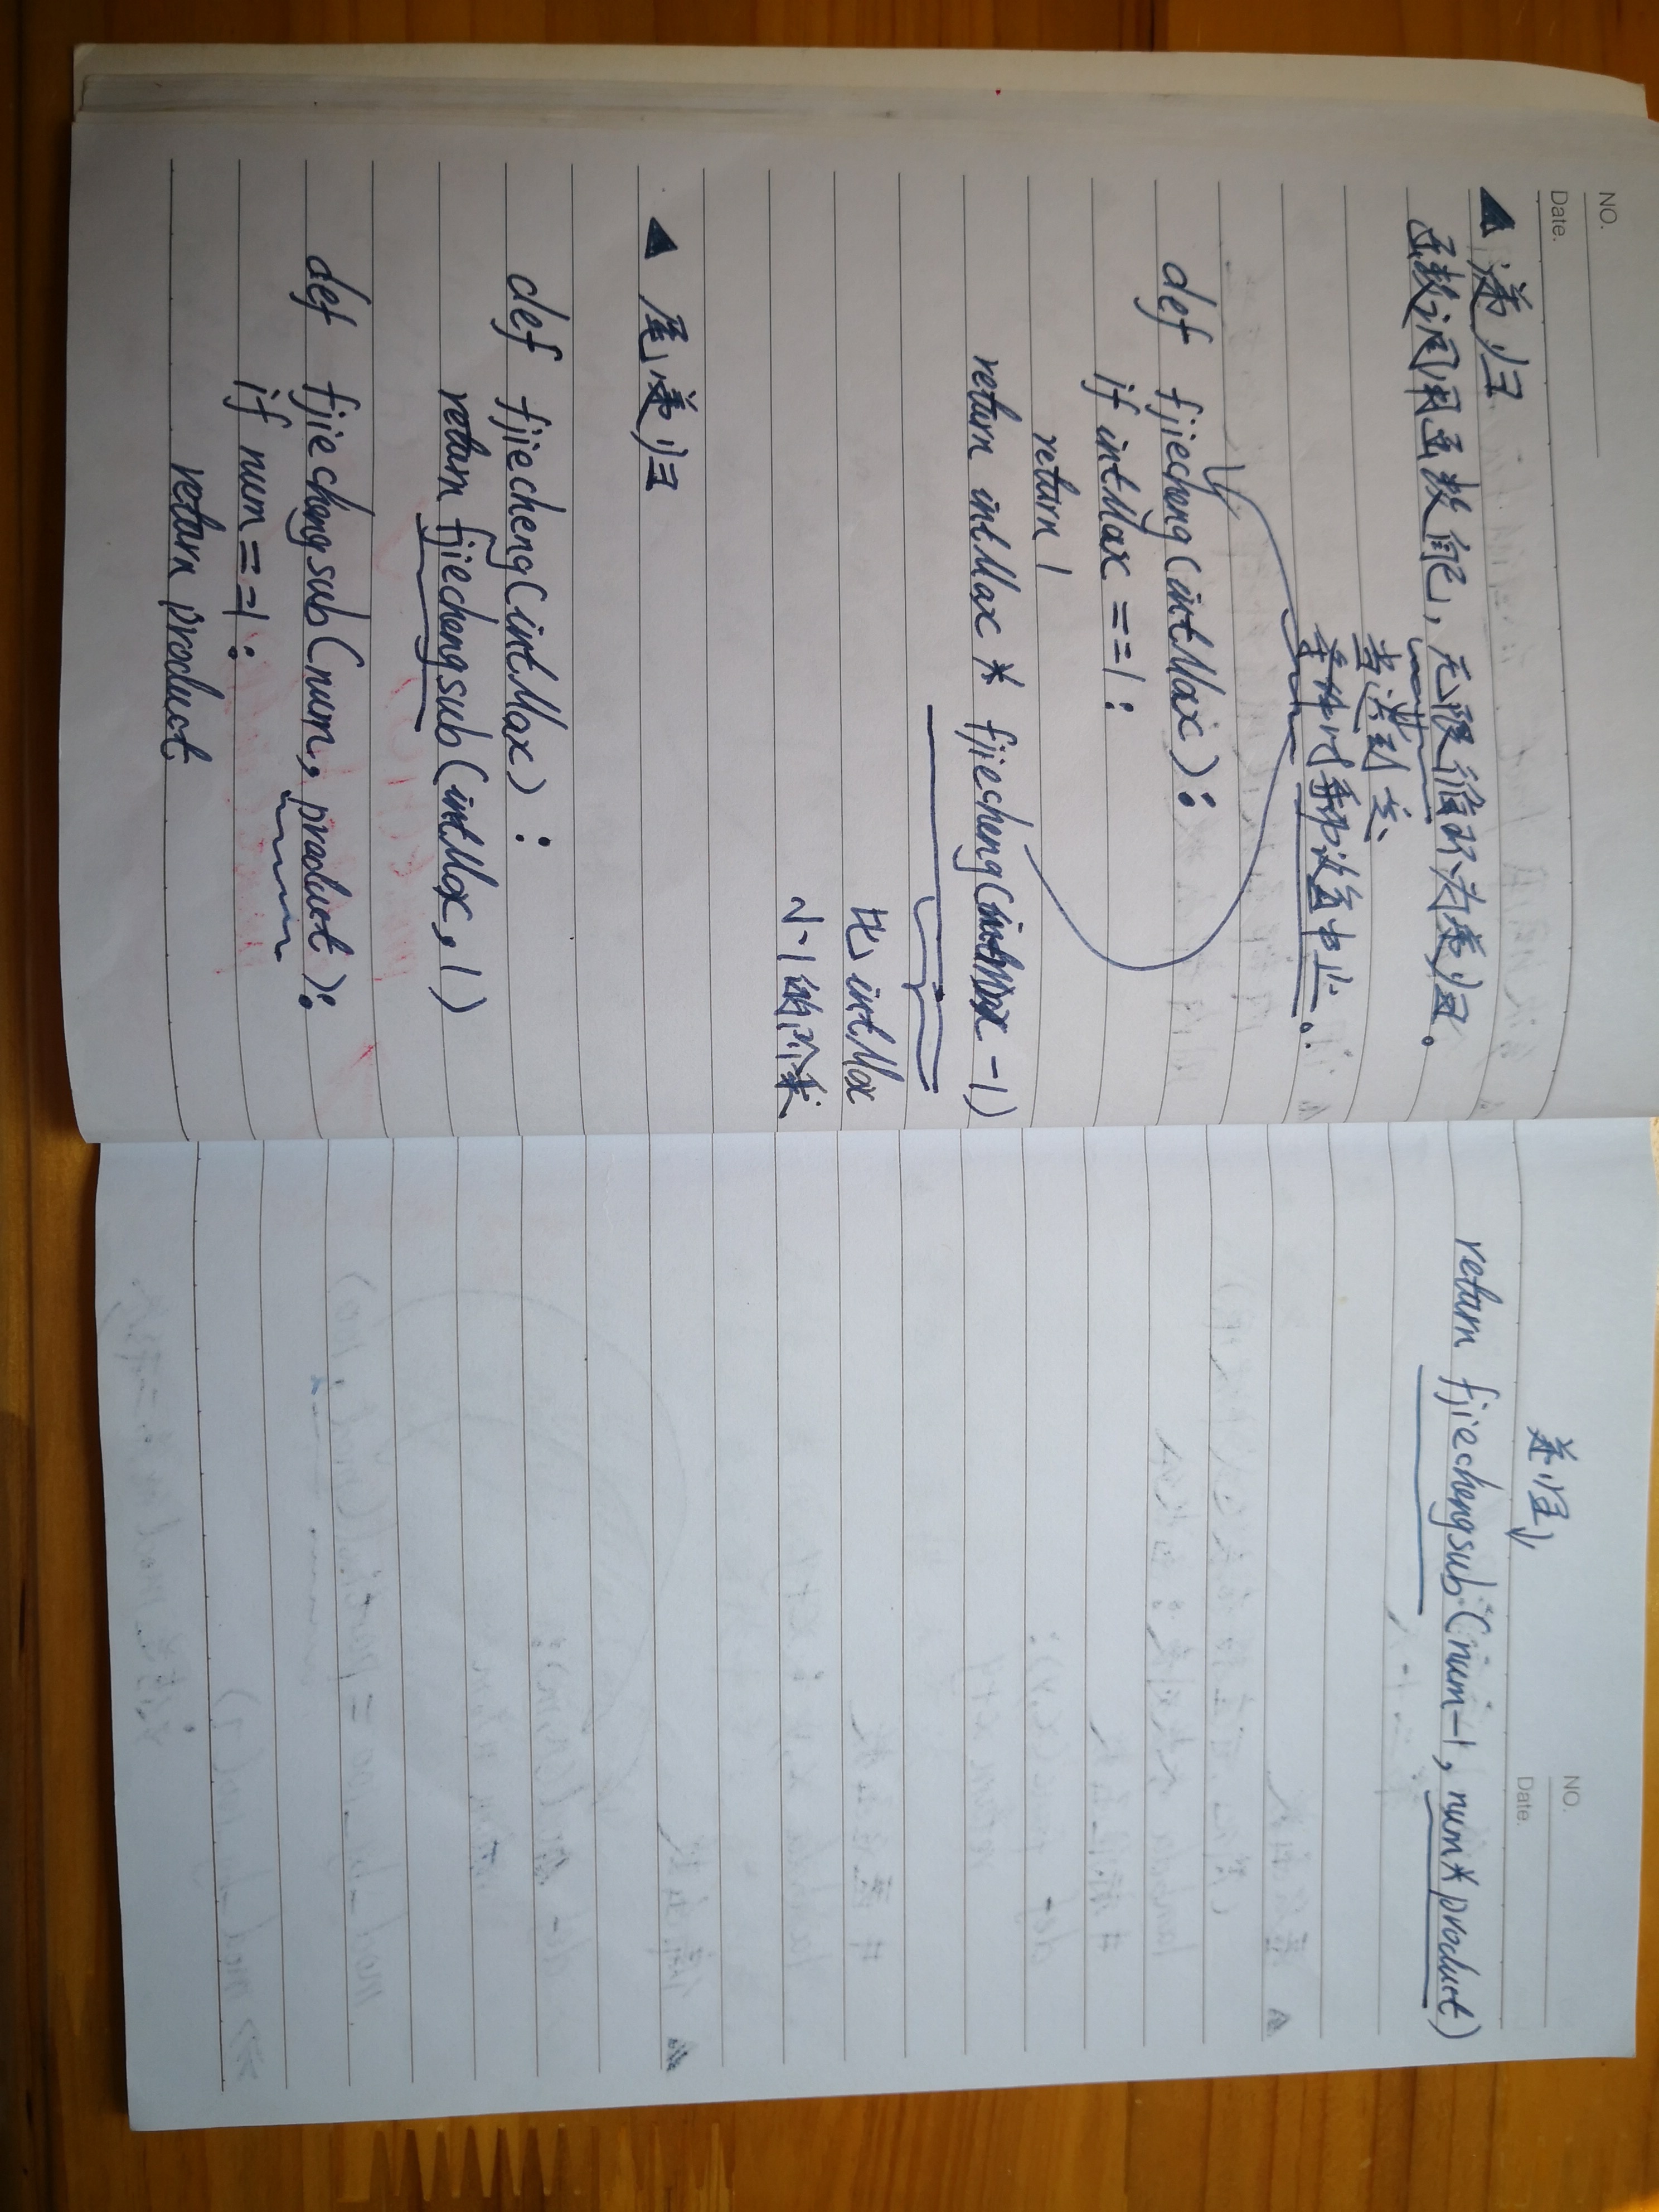 NO.
Date.
▲ 递归
函数调用函数自己，无限循环为递归。
当满足
条件时
def fjiecheng(intMax):
if intMax ==1:
return 1
return intMax * fjiecheng(intMax -1)
比 intMax
小1的阶乘
▲ 尾递归
def fjiecheng(intMax) :
return fjiechengsub(intMax, 1)
def fjiechengsub(num, product):
if num ==1:
return product
NO.
Date.
递归↓
return fjiechengsub(num-1, num*product)